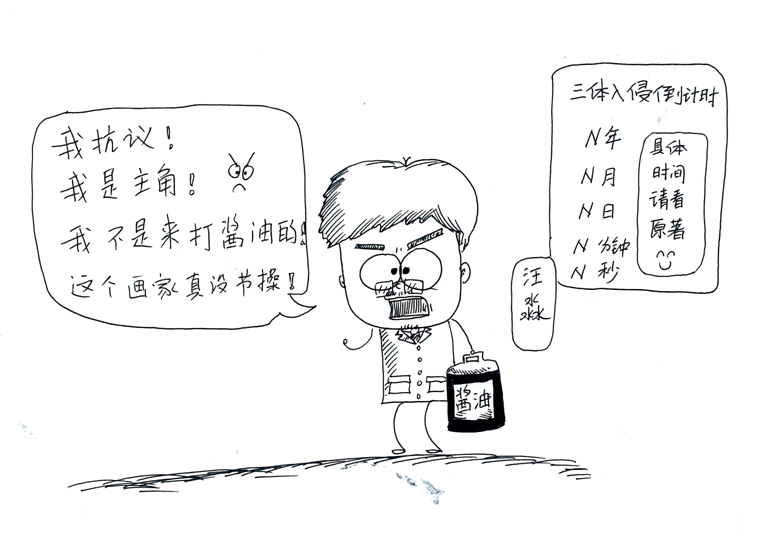 我抗议！
我是主角！
我不是来打酱油的！
这个画家真没节操！
三体入侵倒计时
N年
N月
N日
N分钟
N秒
具体
时间
请看
原著
汪
淼
酱油